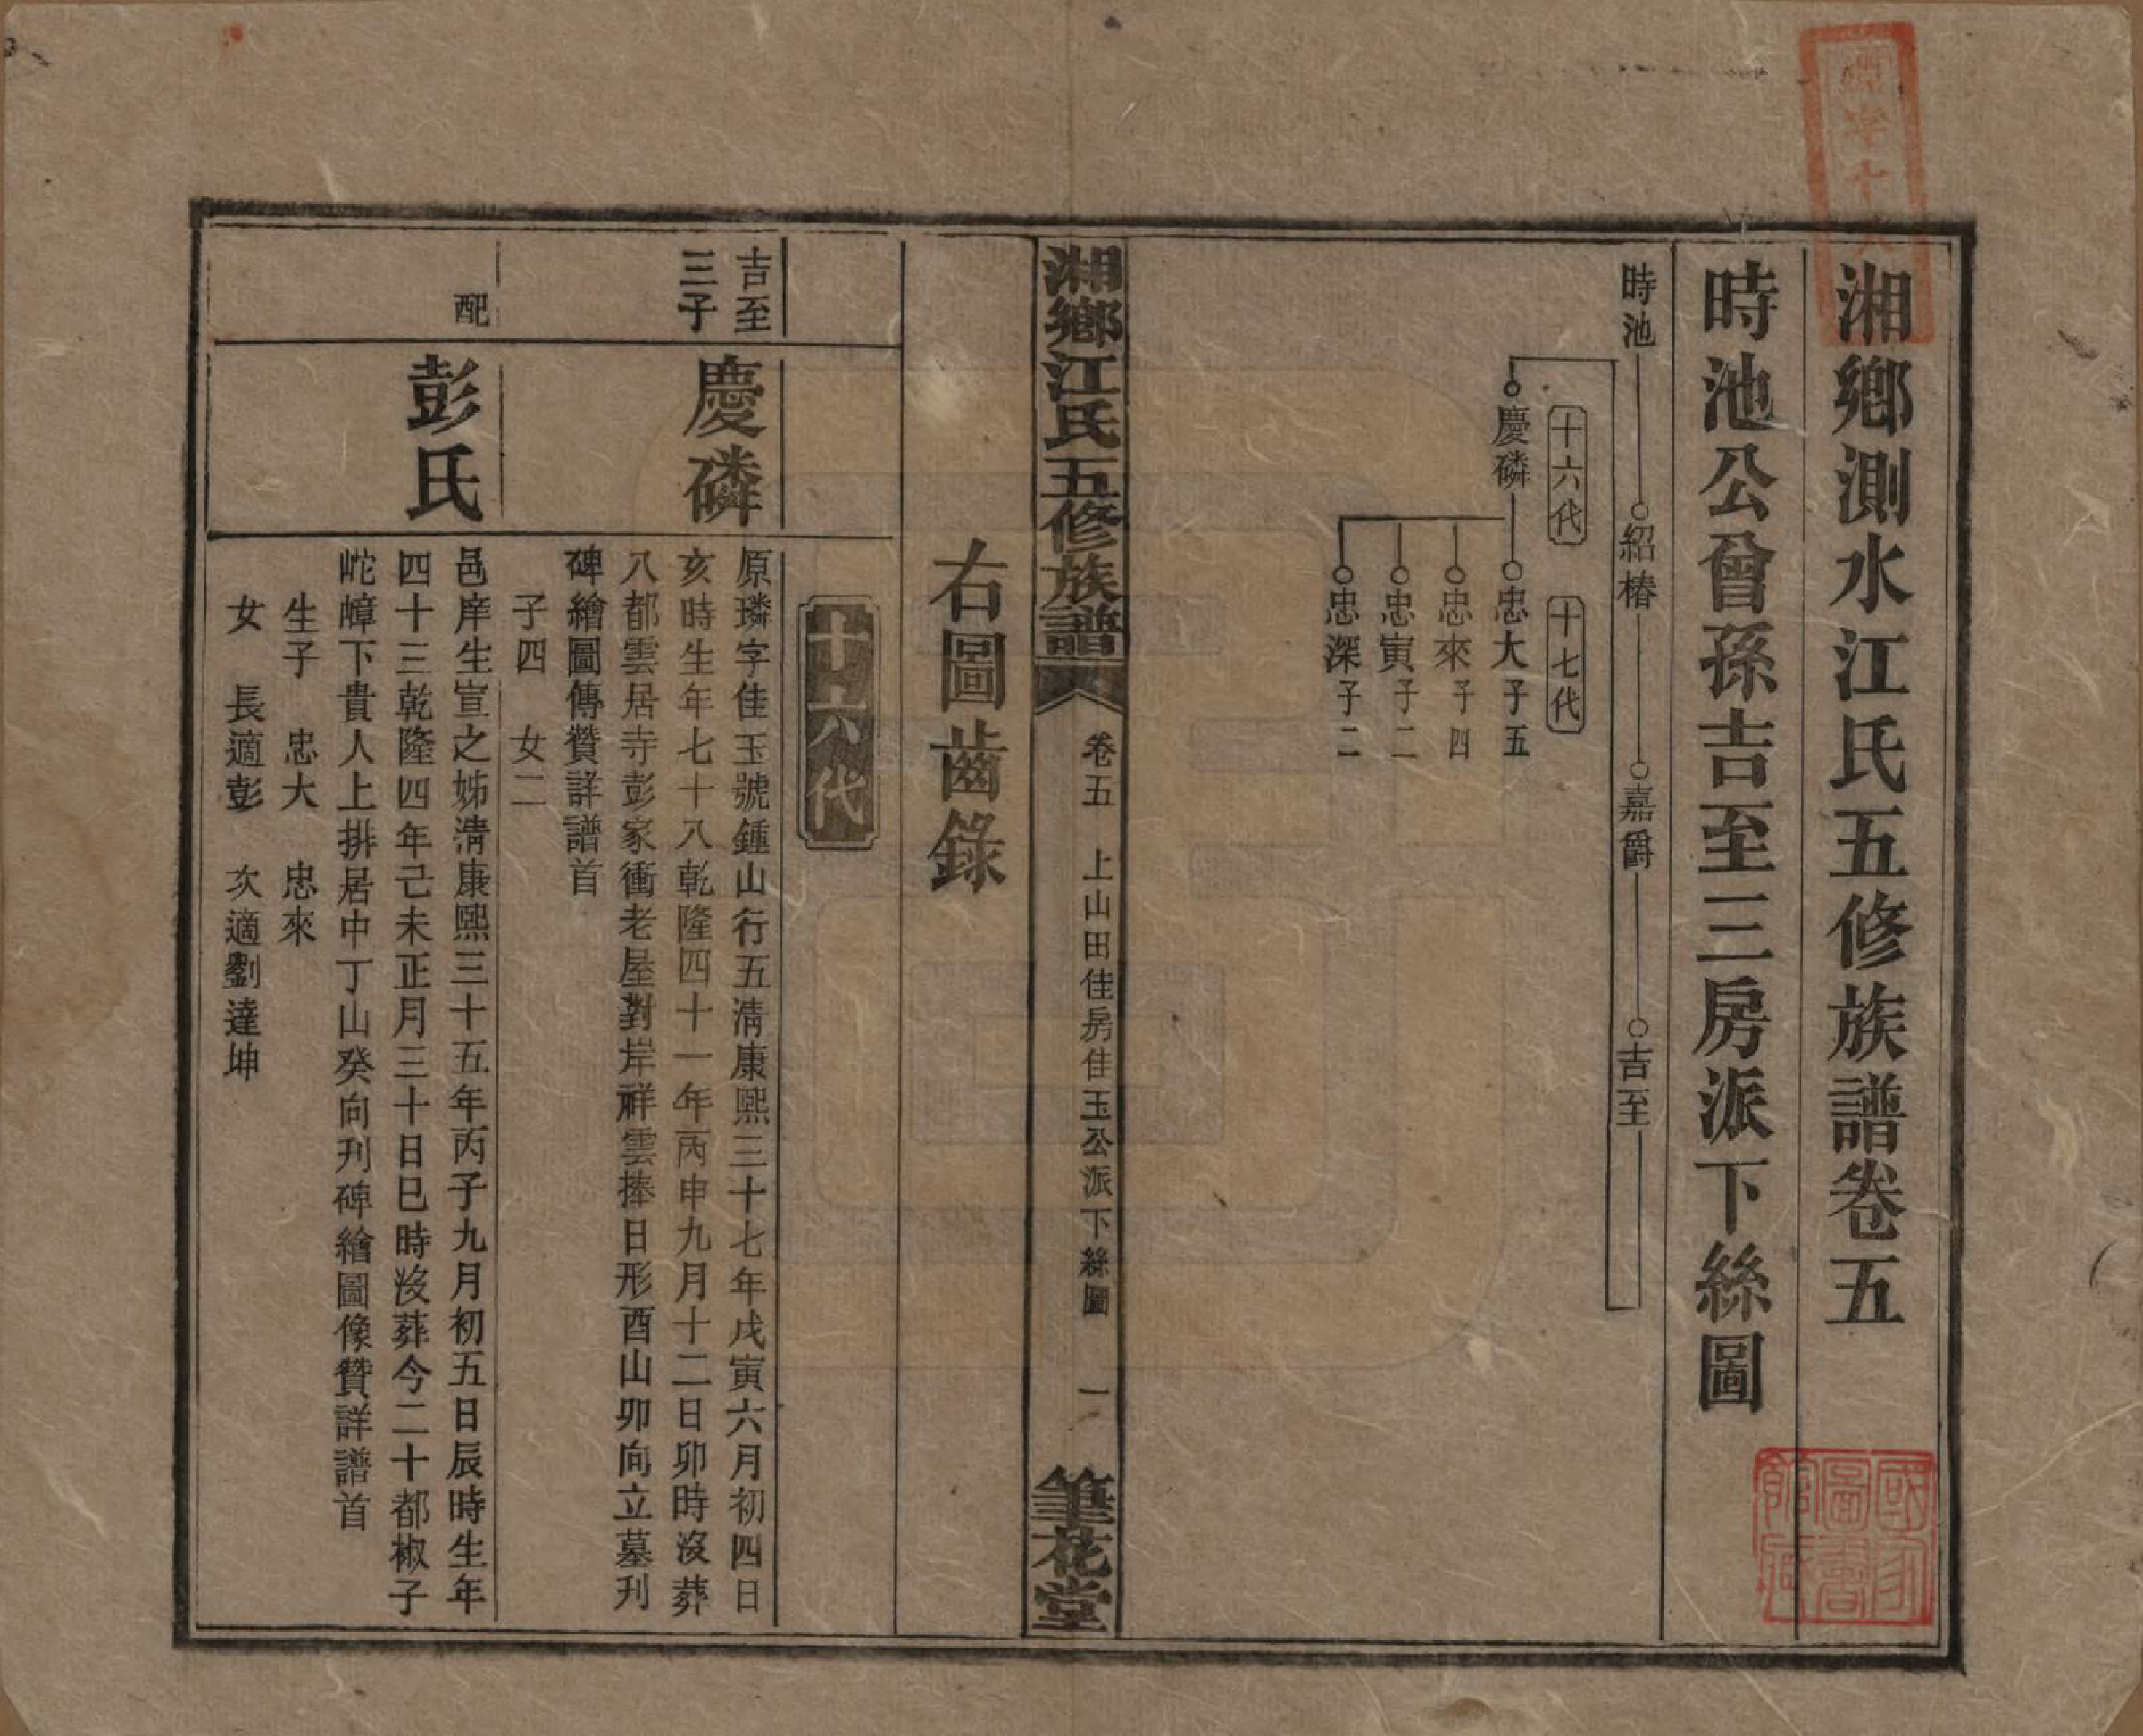 湘鄉測水江氏五修族譜卷五
時池公曾孫吉至三房派下絲圖
時池 紹椿 嘉爵 吉至
十六代 十七代
慶磷 忠大子五
忠來子四
忠寅子二
忠深子二
湘鄉江氏五修族譜 卷五 上山田佳房佳玉公派下絲圖 一 筆花堂
右圖齒錄
十六代
吉至
三子
慶磷
原璘字佳玉號鍾山行五清康熙三十七年戊寅六月初四日
亥時生年七十八乾隆四十一年丙申九月十二日卯時沒葬
八都雲居寺彭家衝老屋對岸祥雲捧日形酉山卯向立墓刋
碑繪圖傳贊詳譜首
子四 女二
配
彭氏
邑庠生宣之姊清康熙三十五年丙子九月初五日辰時生年
四十三乾隆四年己未正月三十日巳時沒葬今二十都椒子
岮嶂下貴人上排居中丁山癸向刋碑繪圖像贊詳譜首
生子 忠大 忠來
女 長適彭 次適劉達坤
國家圖書館藏